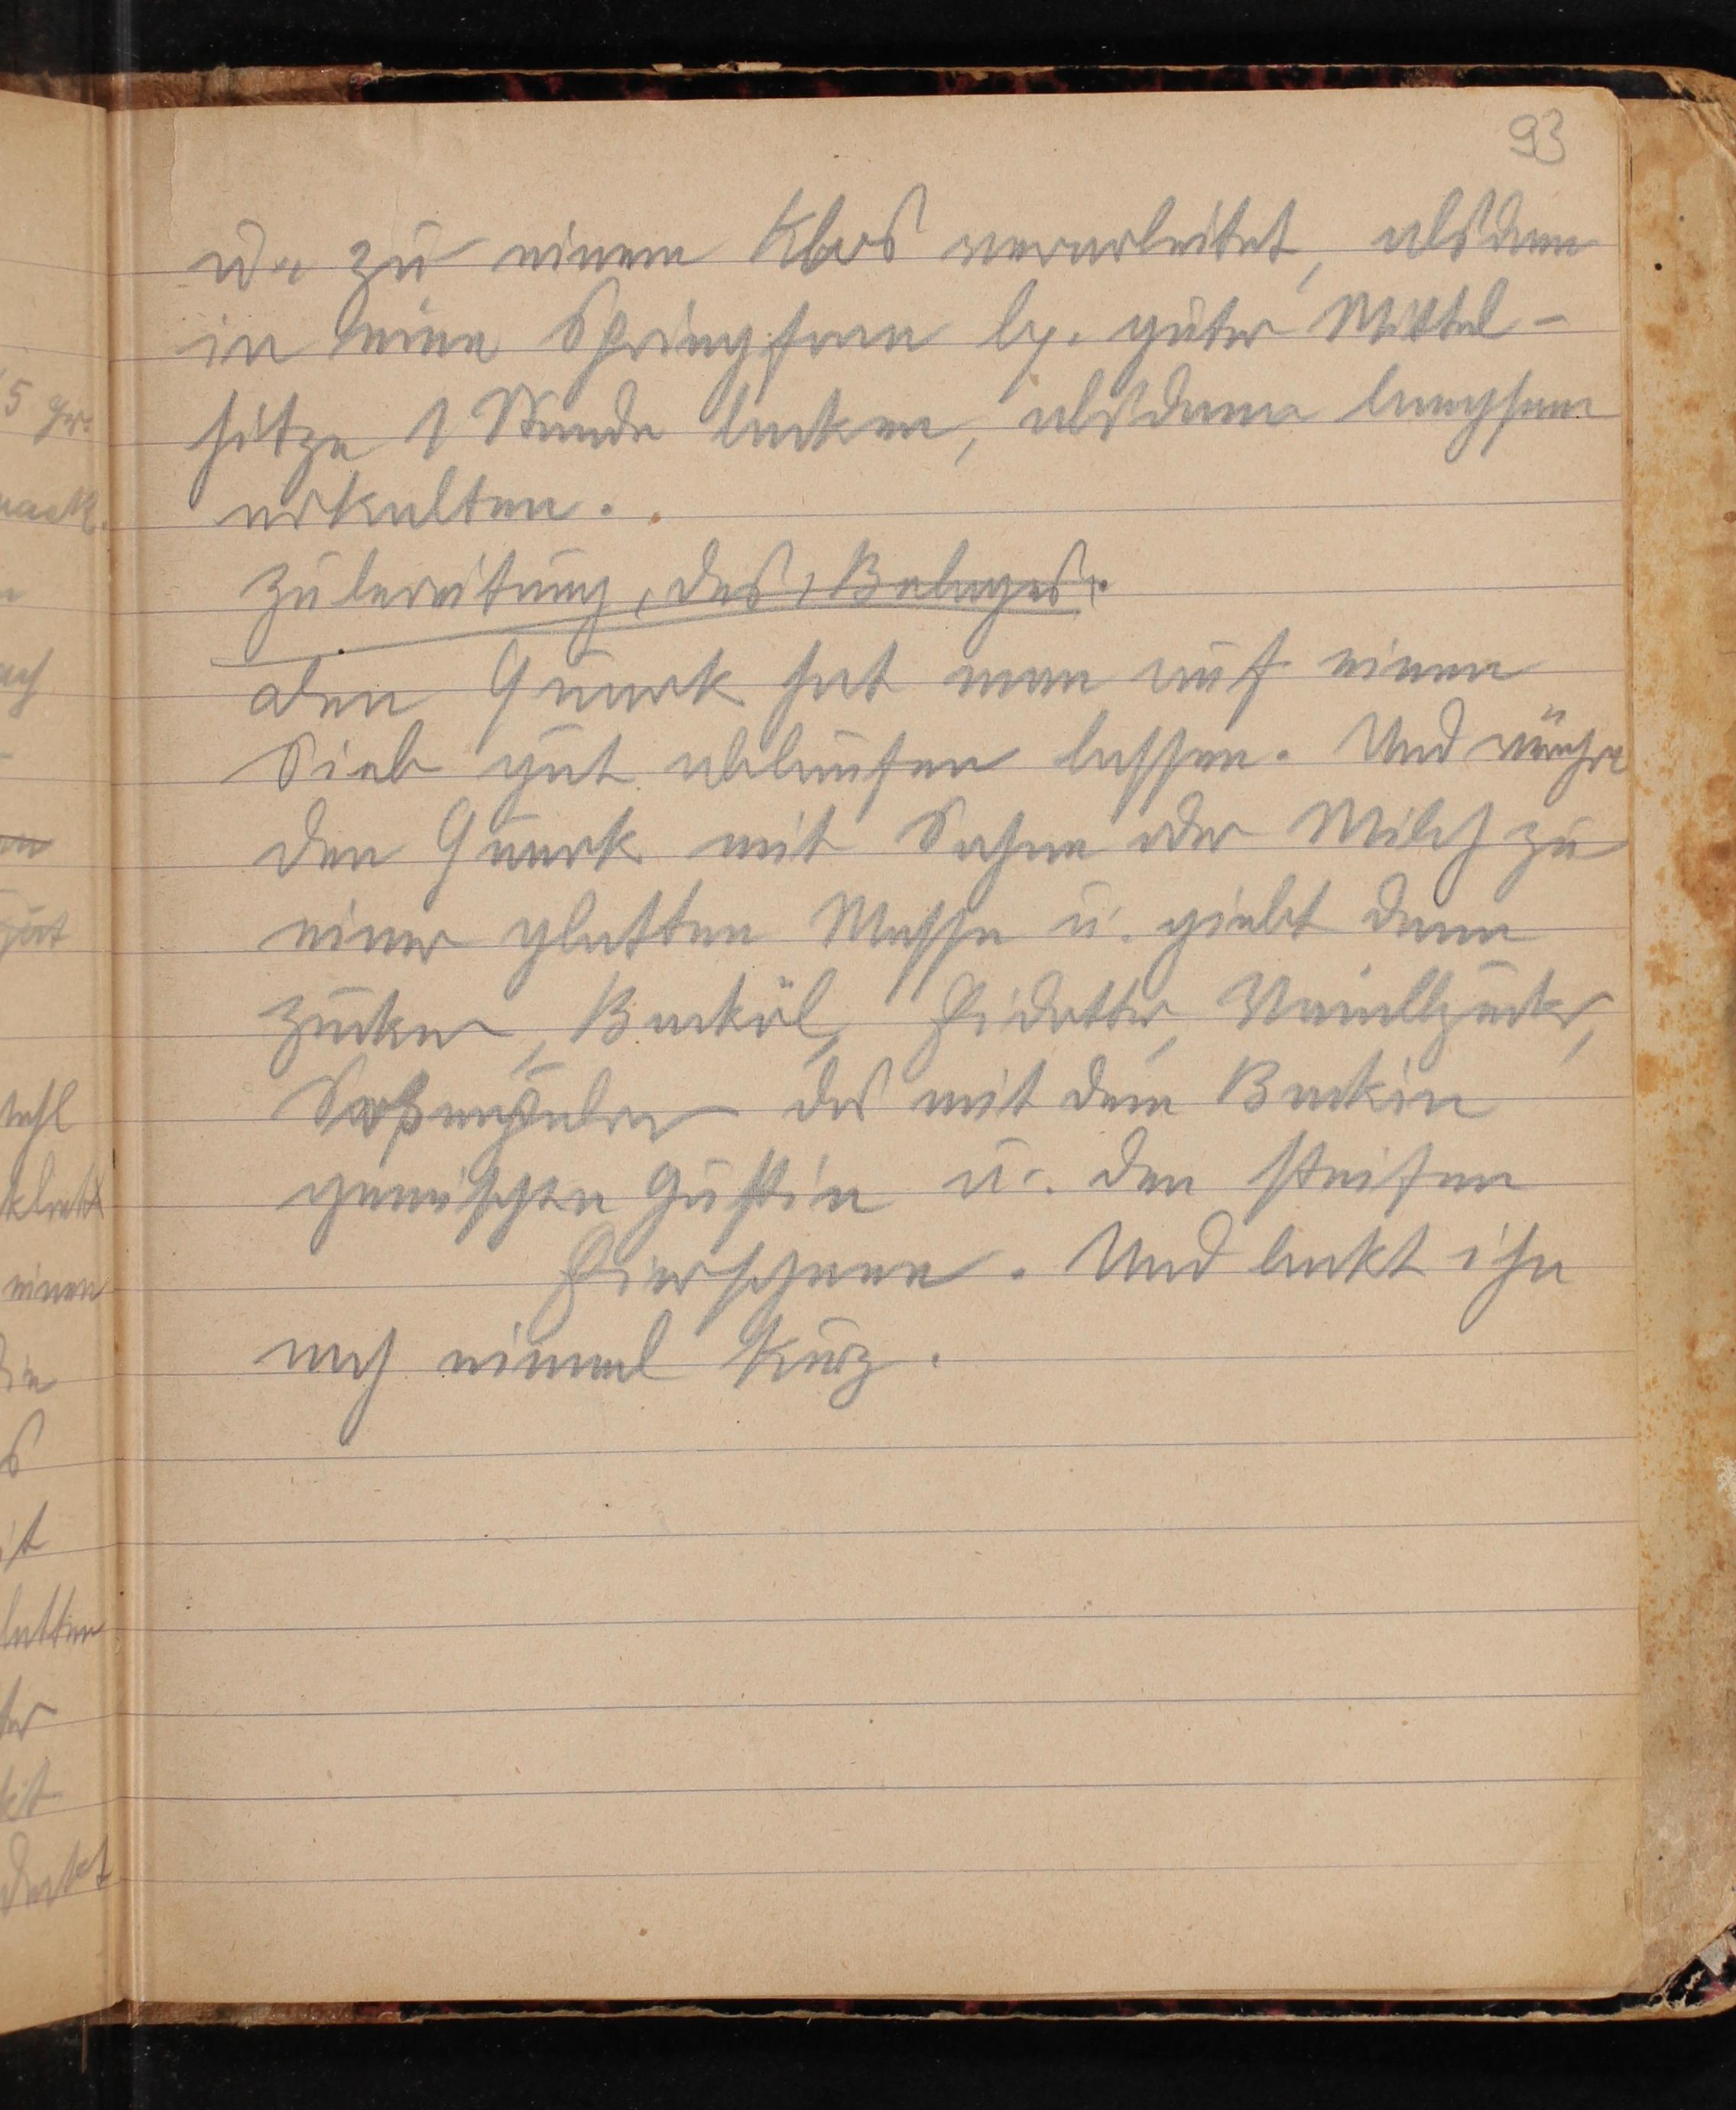 93
u. zu einem Klos verarbeitet, alsdann
in eine Springform bg. guter Mittel-
hitze 1 Stunde backen, alsdann langsam
erkalten.
Zubereitung, des, Belages.
den Quark hat man auf einen
Sieb gut ablaufen lassen. Und
den Quark mit Sahne oder Milch zu
einer glatten Masse u. giebt dann
Zucker, Backöl, Eidotter, Vanillzucker,
Soßenpulver das mit dem Backin
gemischten Gustin u. den steifen
Eierschnee. Und backt ihn
noch einmal kurz.
5 gr.
einen